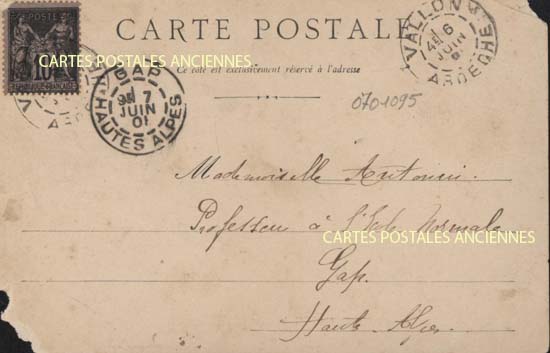 CARTE POSTALE
Ce côté est exclusivement réservé à l'adresse
CARTES POSTALES ANCIENNES
10
RÉPUBLIQUE FRANÇAISE
GAP
7
JUIN
01
HAUTES ALPES
VALLON
6
JUIN
ARDECHE
0701095
Mademoiselle Antonini
Professeur à l'Ecole normale
CARTES POSTALES ANCIENNES
Gap.
Hautes Alpes